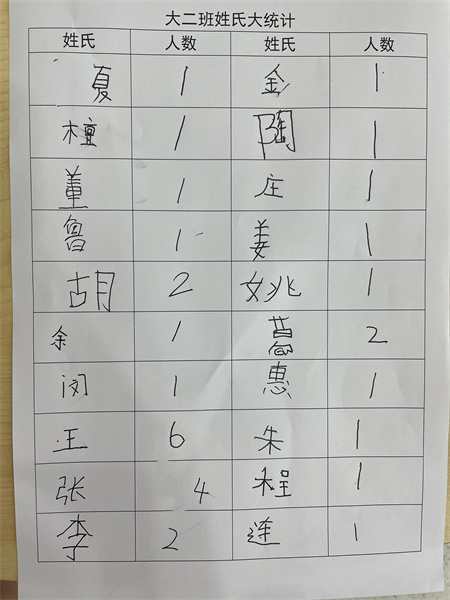 大二班姓氏大统计
姓氏 人数 姓氏 人数
夏 1 金 1
檀 1 陶 1
董 1 庄 1
鲁 1 姜 1
胡 2 姚 1
余 1 葛 2
闵 1 惠 1
王 6 朱 1
张 4 程 1
李 2 连 1